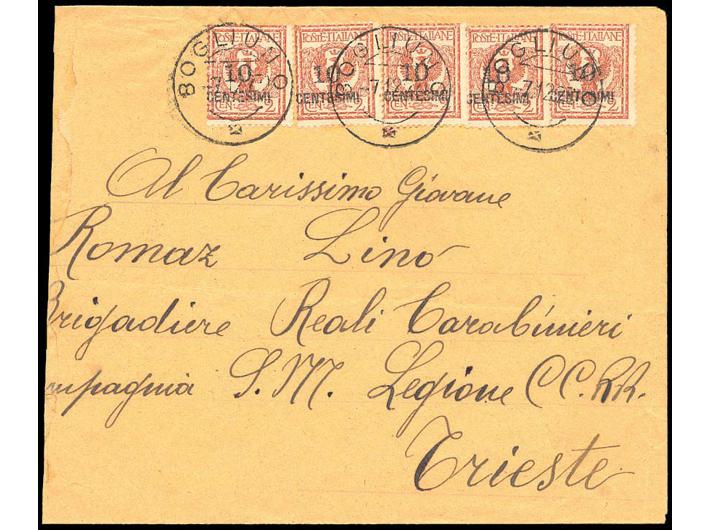 POSTE ITALIANE POSTE ITALIANE POSTE ITALIANE POSTE ITALIANE POSTE ITALIANE
BOGLIUNO BOGLIUNO BOGLIUNO
10 10 10 10 10
CENTESIMI CENTESIMI CENTESIMI CENTESIMI CENTESIMI
Al Carissimo Giovane
Romaz Lino
Brigadiere Reali Carabinieri
ompagnia S.M. Legione CC.RR.
Trieste